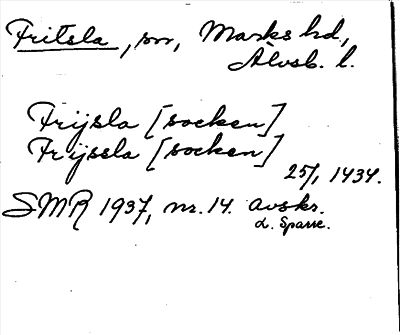 Fritsla, sn, Marks hd,
Älvsb. l.
Frijsla [socken]
Frijssla [socken]
25/1 1434.
SMR 1937, nr. 14. avskr.
L. Sparre.